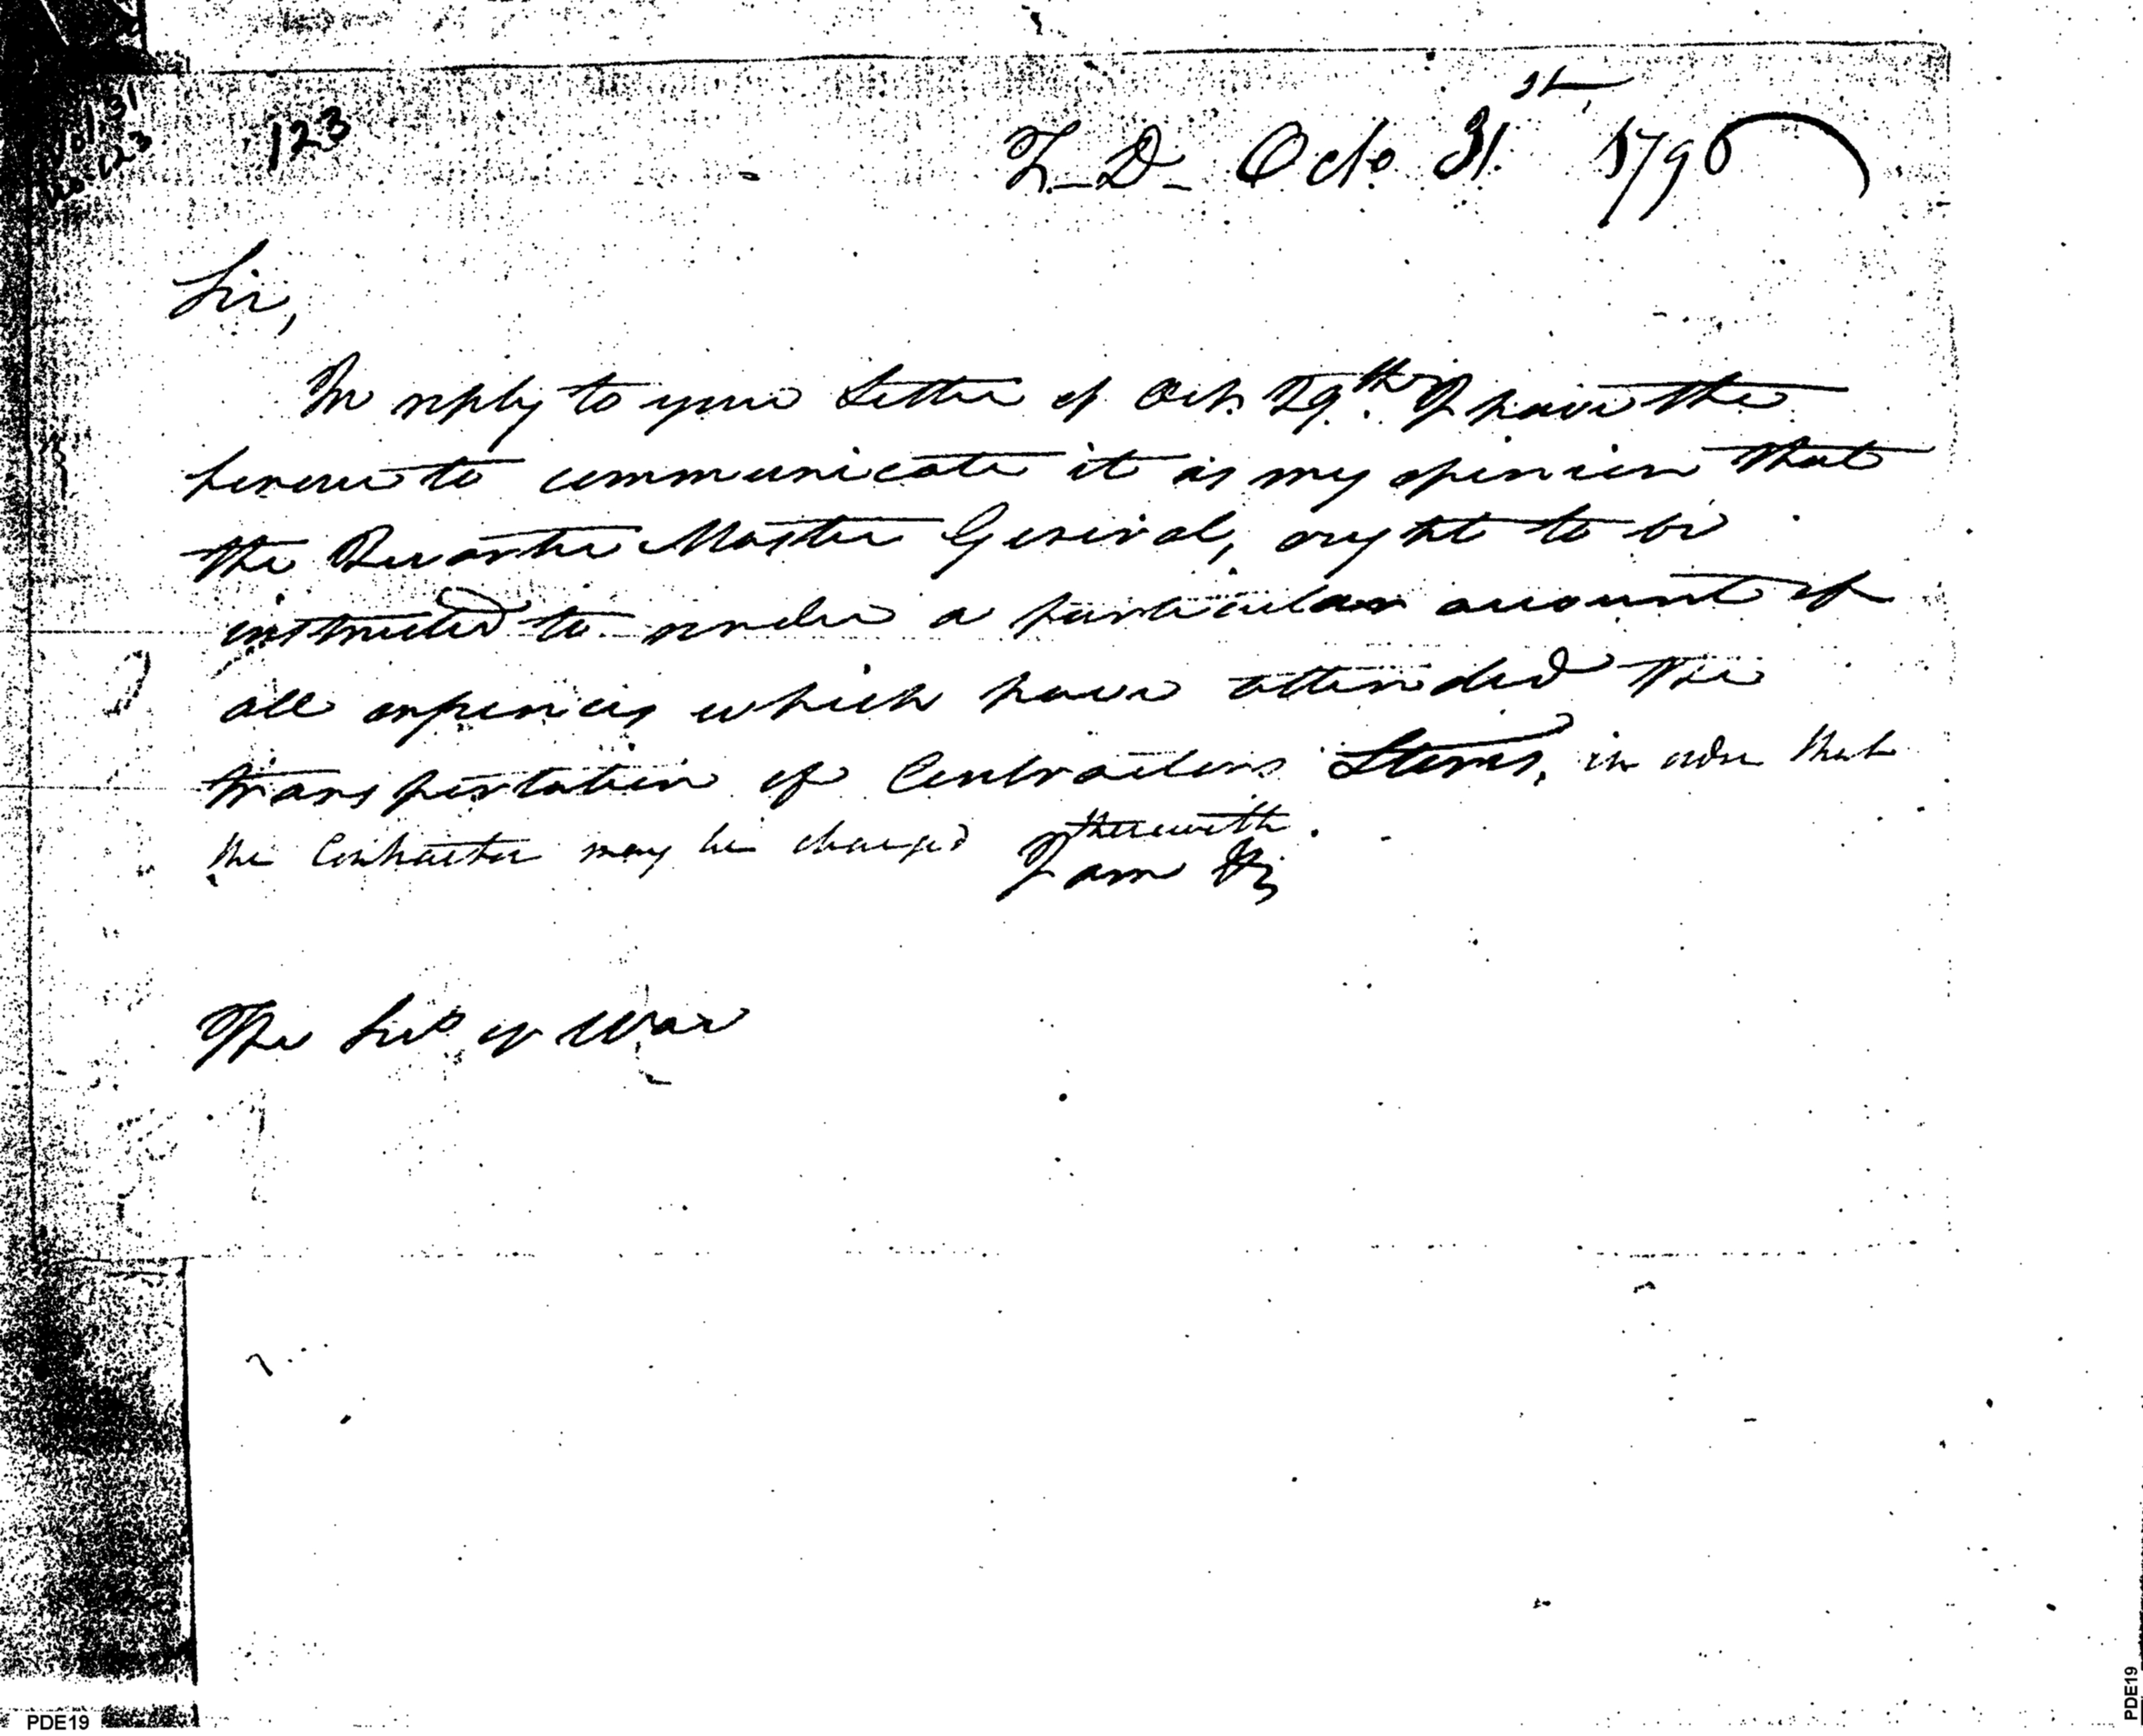 Vol. 31
No. 123
123
T_D_ Octo. 31st 1796
Sir,
In reply to your Letter of Octr. 29th. I have the
honour to communicate it as my opinion that
the Quarter Master General, ought to be
instructed to render a particular account of
all expences which have attended the
transportation of Contractors Stores, in order that
the Contractor may be charged therewith.
I am &c
The Secy of War
PDE19
PDE19